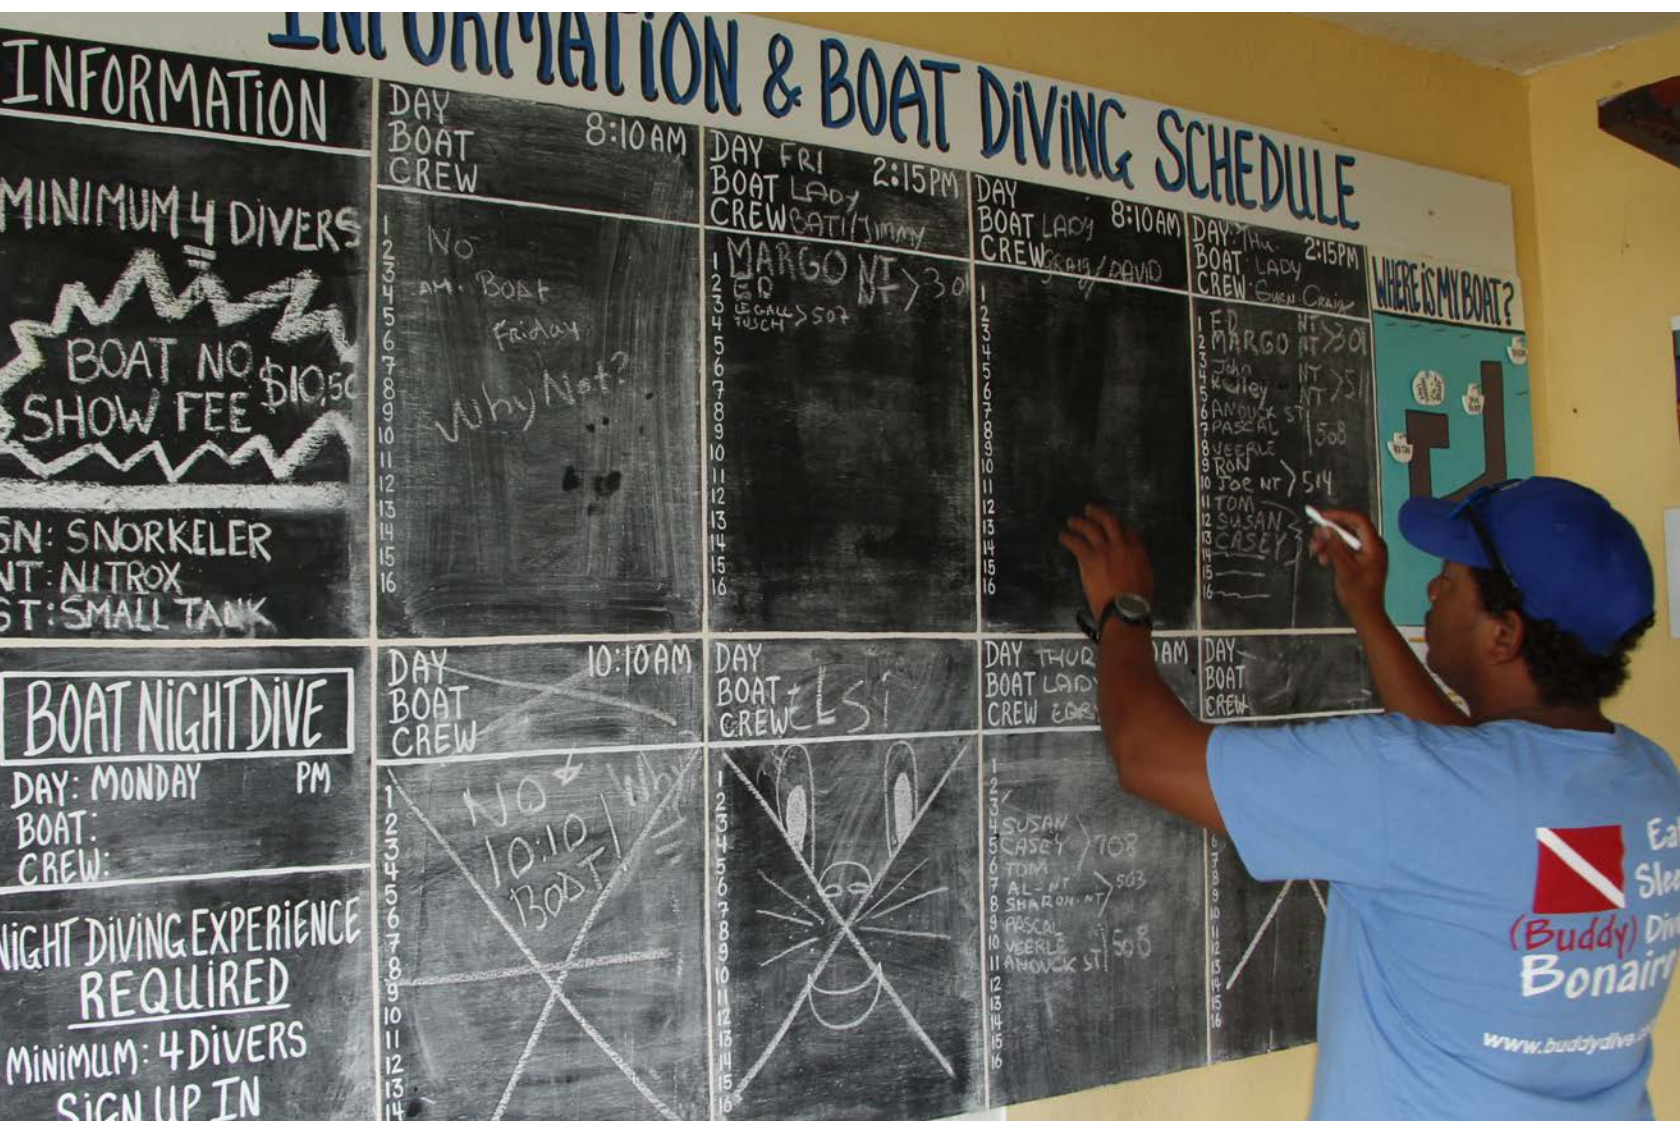 INFORMATION & BOAT DIVING SCHEDULE
INFORMATION
MINIMUM 4 DIVERS
BOAT NO
SHOW FEE $10,50
SN: SNORKELER
NT: NITROX
ST: SMALL TANK
BOAT NIGHT DIVE
DAY: MONDAY PM
BOAT:
CREW:
NIGHT DIVING EXPERIENCE
REQUIRED
MINIMUM: 4 DIVERS
SIGN UP IN
DAY 8:10AM
BOAT
CREW
1
2
3
4
5
6
7
8
9
10
11
12
13
14
15
16
NO
AM. Boat
Friday
Why Not?
DAY FRI 2:15PM
BOAT LADY
CREW BATI/JIMMY
1 MARGO NT > 30
2 ED NT
3 LEGALL > 507
4 TUSCH
5
6
7
8
9
10
11
12
13
14
15
16
DAY 8:10AM
BOAT LADY
CREW CRAIG/DAVID
1
2
3
4
5
6
7
8
9
10
11
12
13
14
15
16
DAY: THU. 2:15PM
BOAT: LADY
CREW: Craig
1 ED NT
2 MARGO NT
3 John NT
NT
6 ANOUCK ST
7 PASCAL 508
8 VEERLE
9 RON
10 JOE NT > 514
11 TOM
12 SUSAN
13 CASEY
14
15
16
WHERE IS MY BOAT?
DAY 10:10AM
BOAT
CREW
1
2
3
4
5
6
7
8
9
10
11
12
13
14
NO
10:10
BOAT
Why
DAY
BOAT
CREW
ELSI
1
2
3
4
5
6
7
8
9
10
11
12
13
14
15
16
DAY THUR 0AM
BOAT LADY
CREW
1
2
3
4 SUSAN
5 CASEY > 708
6 TOM
7 AL-NT > 503
8 SHARON-NT
9 PASCAL
10 VEERLE 508
11 ANOUCK ST
12
13
14
15
16
DAY
BOAT
CREW
6
7
8
9
10
11
12
13
14
15
16
Ea
Slee
(Buddy) Div
Bonaire
www.buddydive.